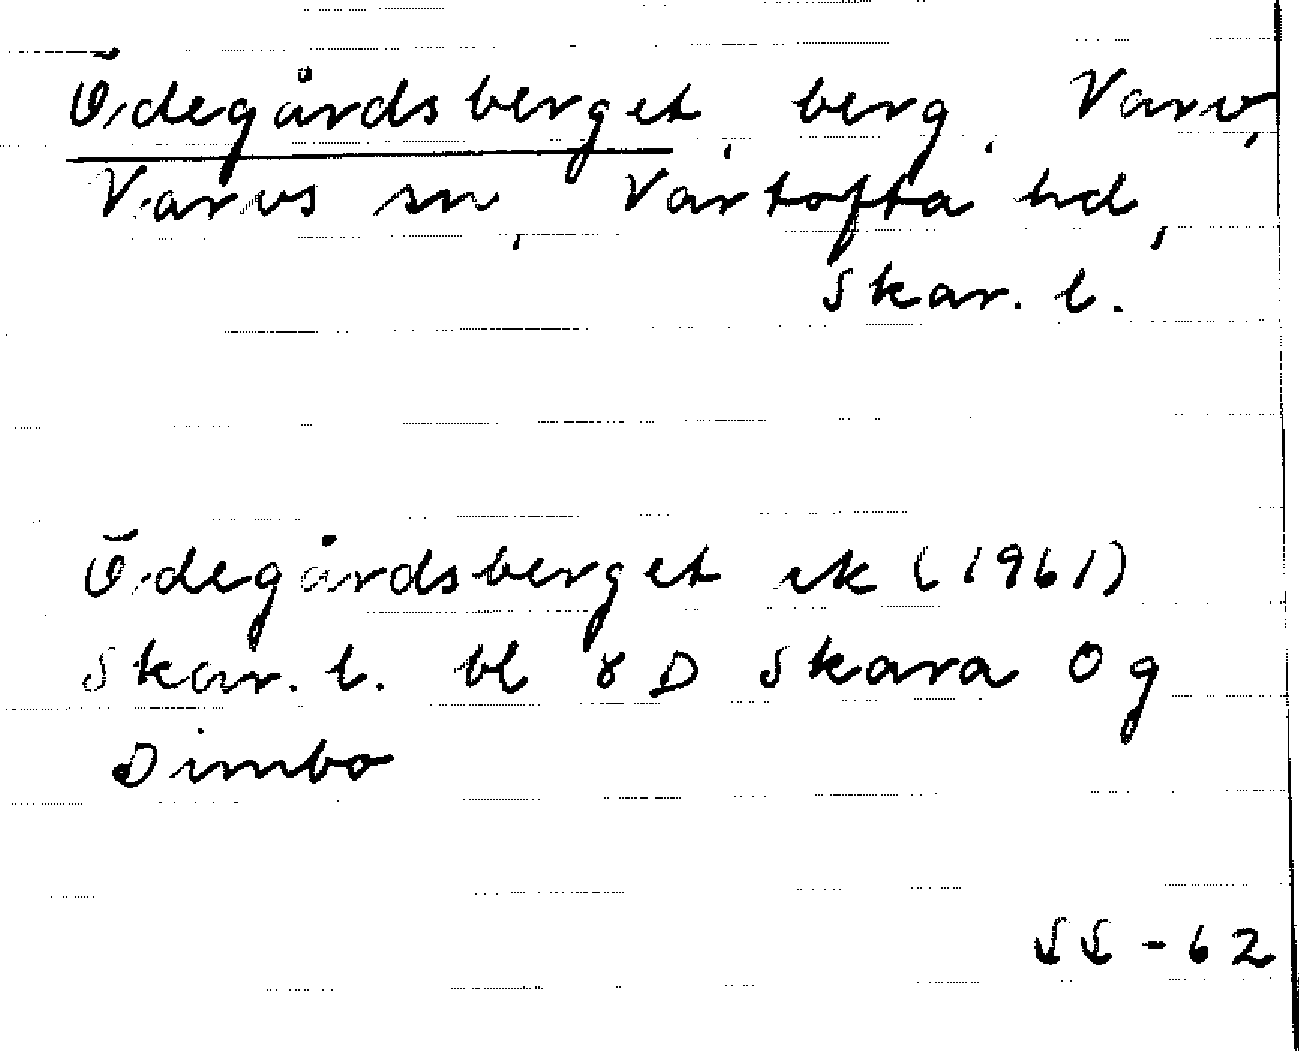 Ödegårdsberget, berg, Varv,
Varvs sn, Vartofta hd,
Skar. l.
Ödegårdsberget ek (1961)
Skar. l. bl 8 D Skara Og
Dimbo
SS - 62